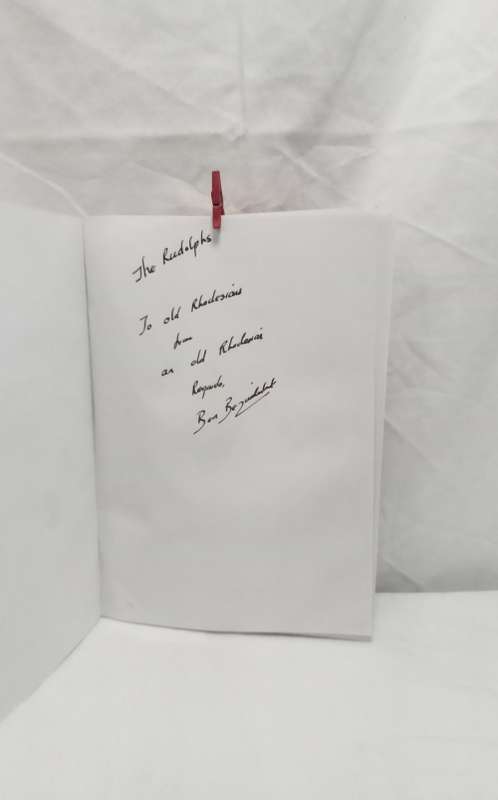 The Rudolphs
To old Rhodesians
from
an old Rhodesian
Regards,
Ben Bezuidenhout